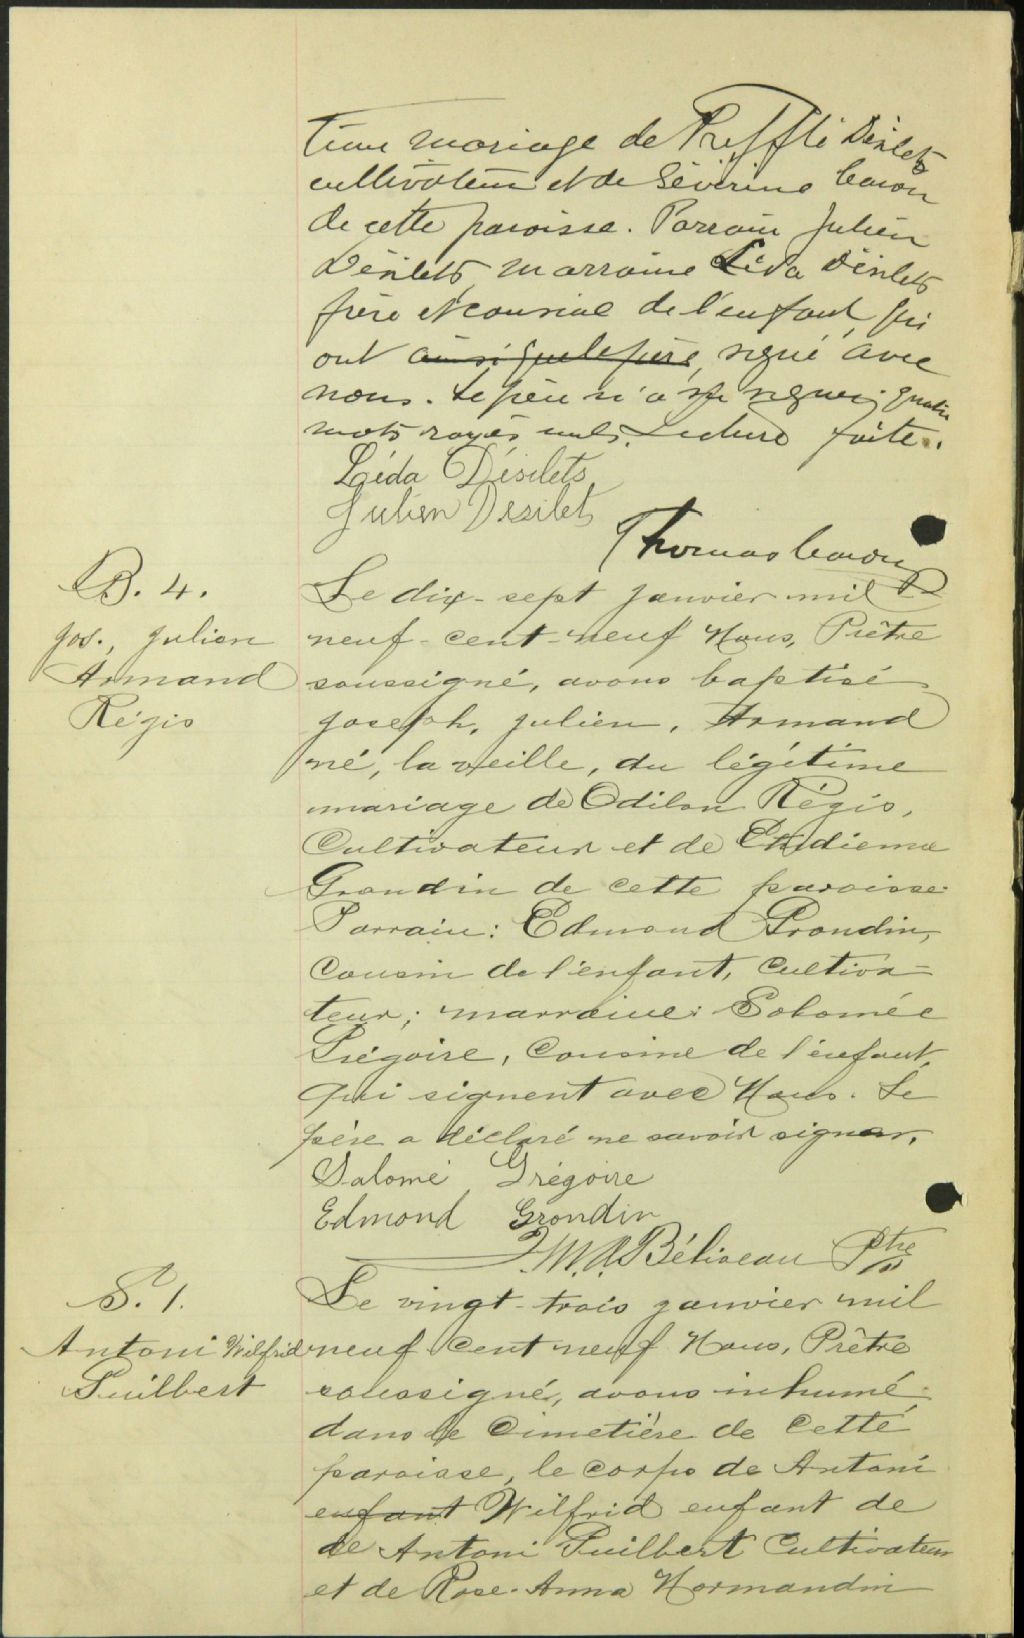 time mariage de Treffli Désilets
cultivateur et de Séverine Caron
de cette paroisse. Parrain Julien
Désilets, marraine Léda Désilets
frère et cousine de l'enfant, qui
ont ainsi que le père, signé avec
nous. Le père n'a su signer; quatre
mots rayés nuls. Lecture faite.
Léda Désilets
Julien Désilets
Thomas Caron
B. 4.
Jos., Julien
Armand
Régis
Le dix-sept janvier mil
neuf-cent-neuf Nous, Prêtre
soussigné, avons baptisé
Joseph, Julien, Armand
né, la veille, du légitime
mariage de Odilon Régis,
Cultivateur et de
Grondin de cette paroisse.
Parrain: Edmond Grondin,
Cousin de l'enfant, cultiva-
teur; marraine: Salomée
Grégoire, Cousine de l'enfant,
qui signent avec Nous. Le
père a déclaré ne savoir signer.
Salomé Grégoire
Edmond Grondin
Béliveau Ptre
S. 1.
Antoni Wilfrid
Guilbert
Le vingt-trois janvier mil
neuf cent neuf Nous, Prêtre
soussigné, avons inhumé
dans le Cimetière de Cette
paroisse, le corps de Antoni
enfant Wilfrid enfant de
de Antoni Guilbert Cultivateur
et de Rose-Anna Normandin